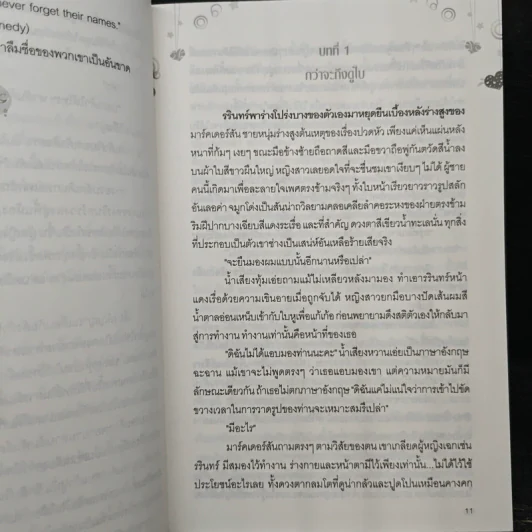 ever forget their names."
nedy)
าลืมชื่อของพวกเขาเป็นอันขาด
บทที่ 1
กว่าจะถึงดูไบ
รรินทร์พาร่างโปร่งบางของตัวเองมาหยุดยืนเบื้องหลังร่างสูงของ
มาร์คเดอร์สัน ชายหนุ่มร่างสูงต้นเหตุของเรื่องปวดหัว เพียงแค่เห็นแผ่นหลัง
หนาที่ก้มๆ เงยๆ ขณะมือข้างซ้ายถือถาดสีและมือขวาถือพู่กันตวัดสีน้ำลง
บนผ้าใบสีขาวผืนใหญ่ หญิงสาวเลยอดใจที่จะชื่นชมเขาเงียบๆ ไม่ได้ ผู้ชาย
คนนี้เกิดมาเพื่อละลายใจเพศตรงข้ามจริงๆ ทั้งใบหน้าเรียวยาวราวรูปสลัก
อันเลอค่า จมูกโด่งเป็นสันน่าถวิลยามคลอเคลียลำคอระหงของฝ่ายตรงข้าม
ริมฝีปากบางเฉียบสีแดงระเรื่อ และที่สำคัญ ดวงตาสีเขียวน้ำทะเลนั่น ทุกสิ่ง
ที่ประกอบเป็นตัวเขาช่างเป็นเสน่ห์อันเหลือร้ายเสียจริง
"จะยืนมองผมแบบนั้นอีกนานหรือเปล่า"
น้ำเสียงทุ้มเอ่ยถามแม้ไม่เหลียวหลังมามอง ทำเอารรินทร์หน้า
แดงเรื่อด้วยความเขินอายเมื่อถูกจับได้ หญิงสาวยกมือบางปัดเส้นผมสี
น้ำตาลอ่อนเหน็บเข้ากับใบหูเพื่อแก้เก้อ ก่อนพยายามดึงสติตัวเองให้กลับมา
สู่การทำงาน ทำงานเท่านั้นคือหน้าที่ของเธอ
"ดิฉันไม่ได้แอบมองท่านนะคะ" น้ำเสียงหวานเอ่ยเป็นภาษาอังกฤษ
ฉะฉาน แม้เขาจะไม่พูดตรงๆ ว่าเธอแอบมองเขา แต่ความหมายมันก็มี
ลักษณะเดียวกัน ถ้าเธอไม่ตกภาษาอังกฤษ "ดิฉันแค่ไม่แน่ใจว่าการเข้าไปขัด
ขวางเวลาในการวาดรูปของท่านจะเหมาะสมรึเปล่า"
"มีอะไร"
มาร์คเดอร์สันถามตรงๆ ตามวิสัยของตน เขาเกลียดผู้หญิงเฉกเช่น
รรินทร์ มีสมองไว้ทำงาน ร่างกายและหน้าตามีไว้เพียงเท่านั้น...ไม่ได้ไว้ใช้
ประโยชน์อะไรเลย ทั้งดวงตากลมโตที่ดูน่ากลัวและปูดโปนเหมือนคางคก
11